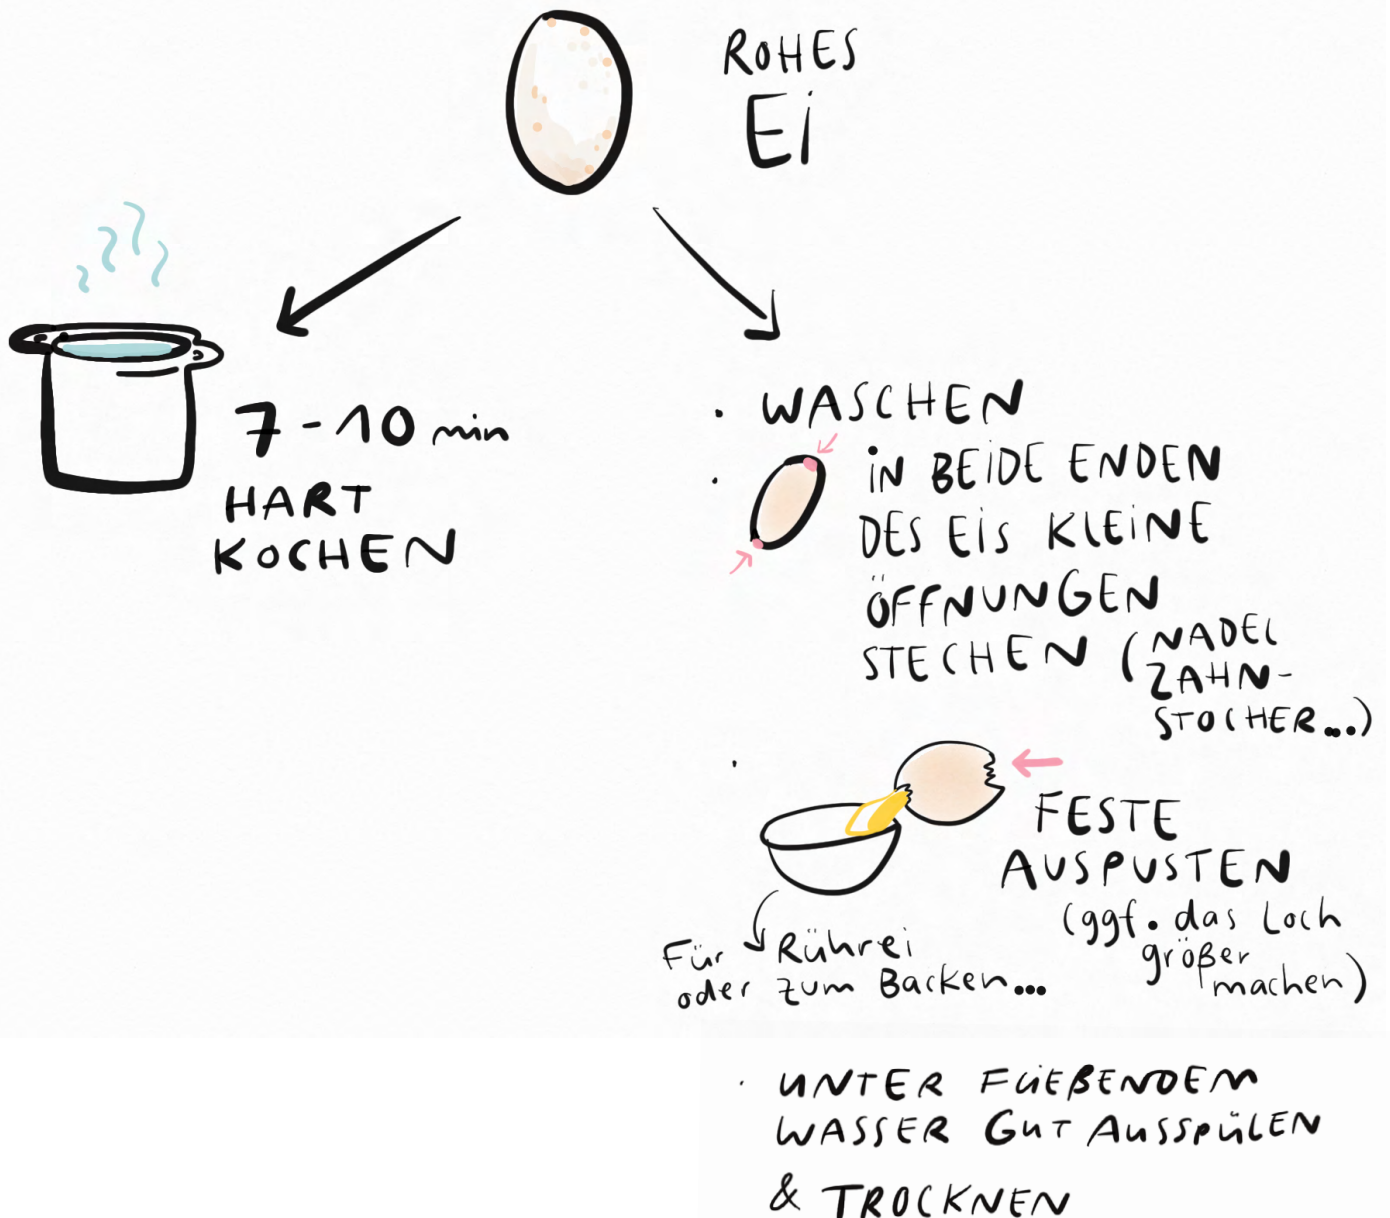 ROHES
Ei
7-10 min
HART
KOCHEN
· WASCHEN
· iN BEiDE ENDEN
DES Eis KLEiNE
ÖFFNUNGEN
STECHEN (NADEL
ZAHN-
STOCHER...)
· FESTE
AUSPUSTEN
(ggf. das Loch
größer
machen)
Für Rührei
oder zum Backen...
· UNTER FLiEßENDEM
WASSER GUT AUSSPÜLEN
& TROCKNEN